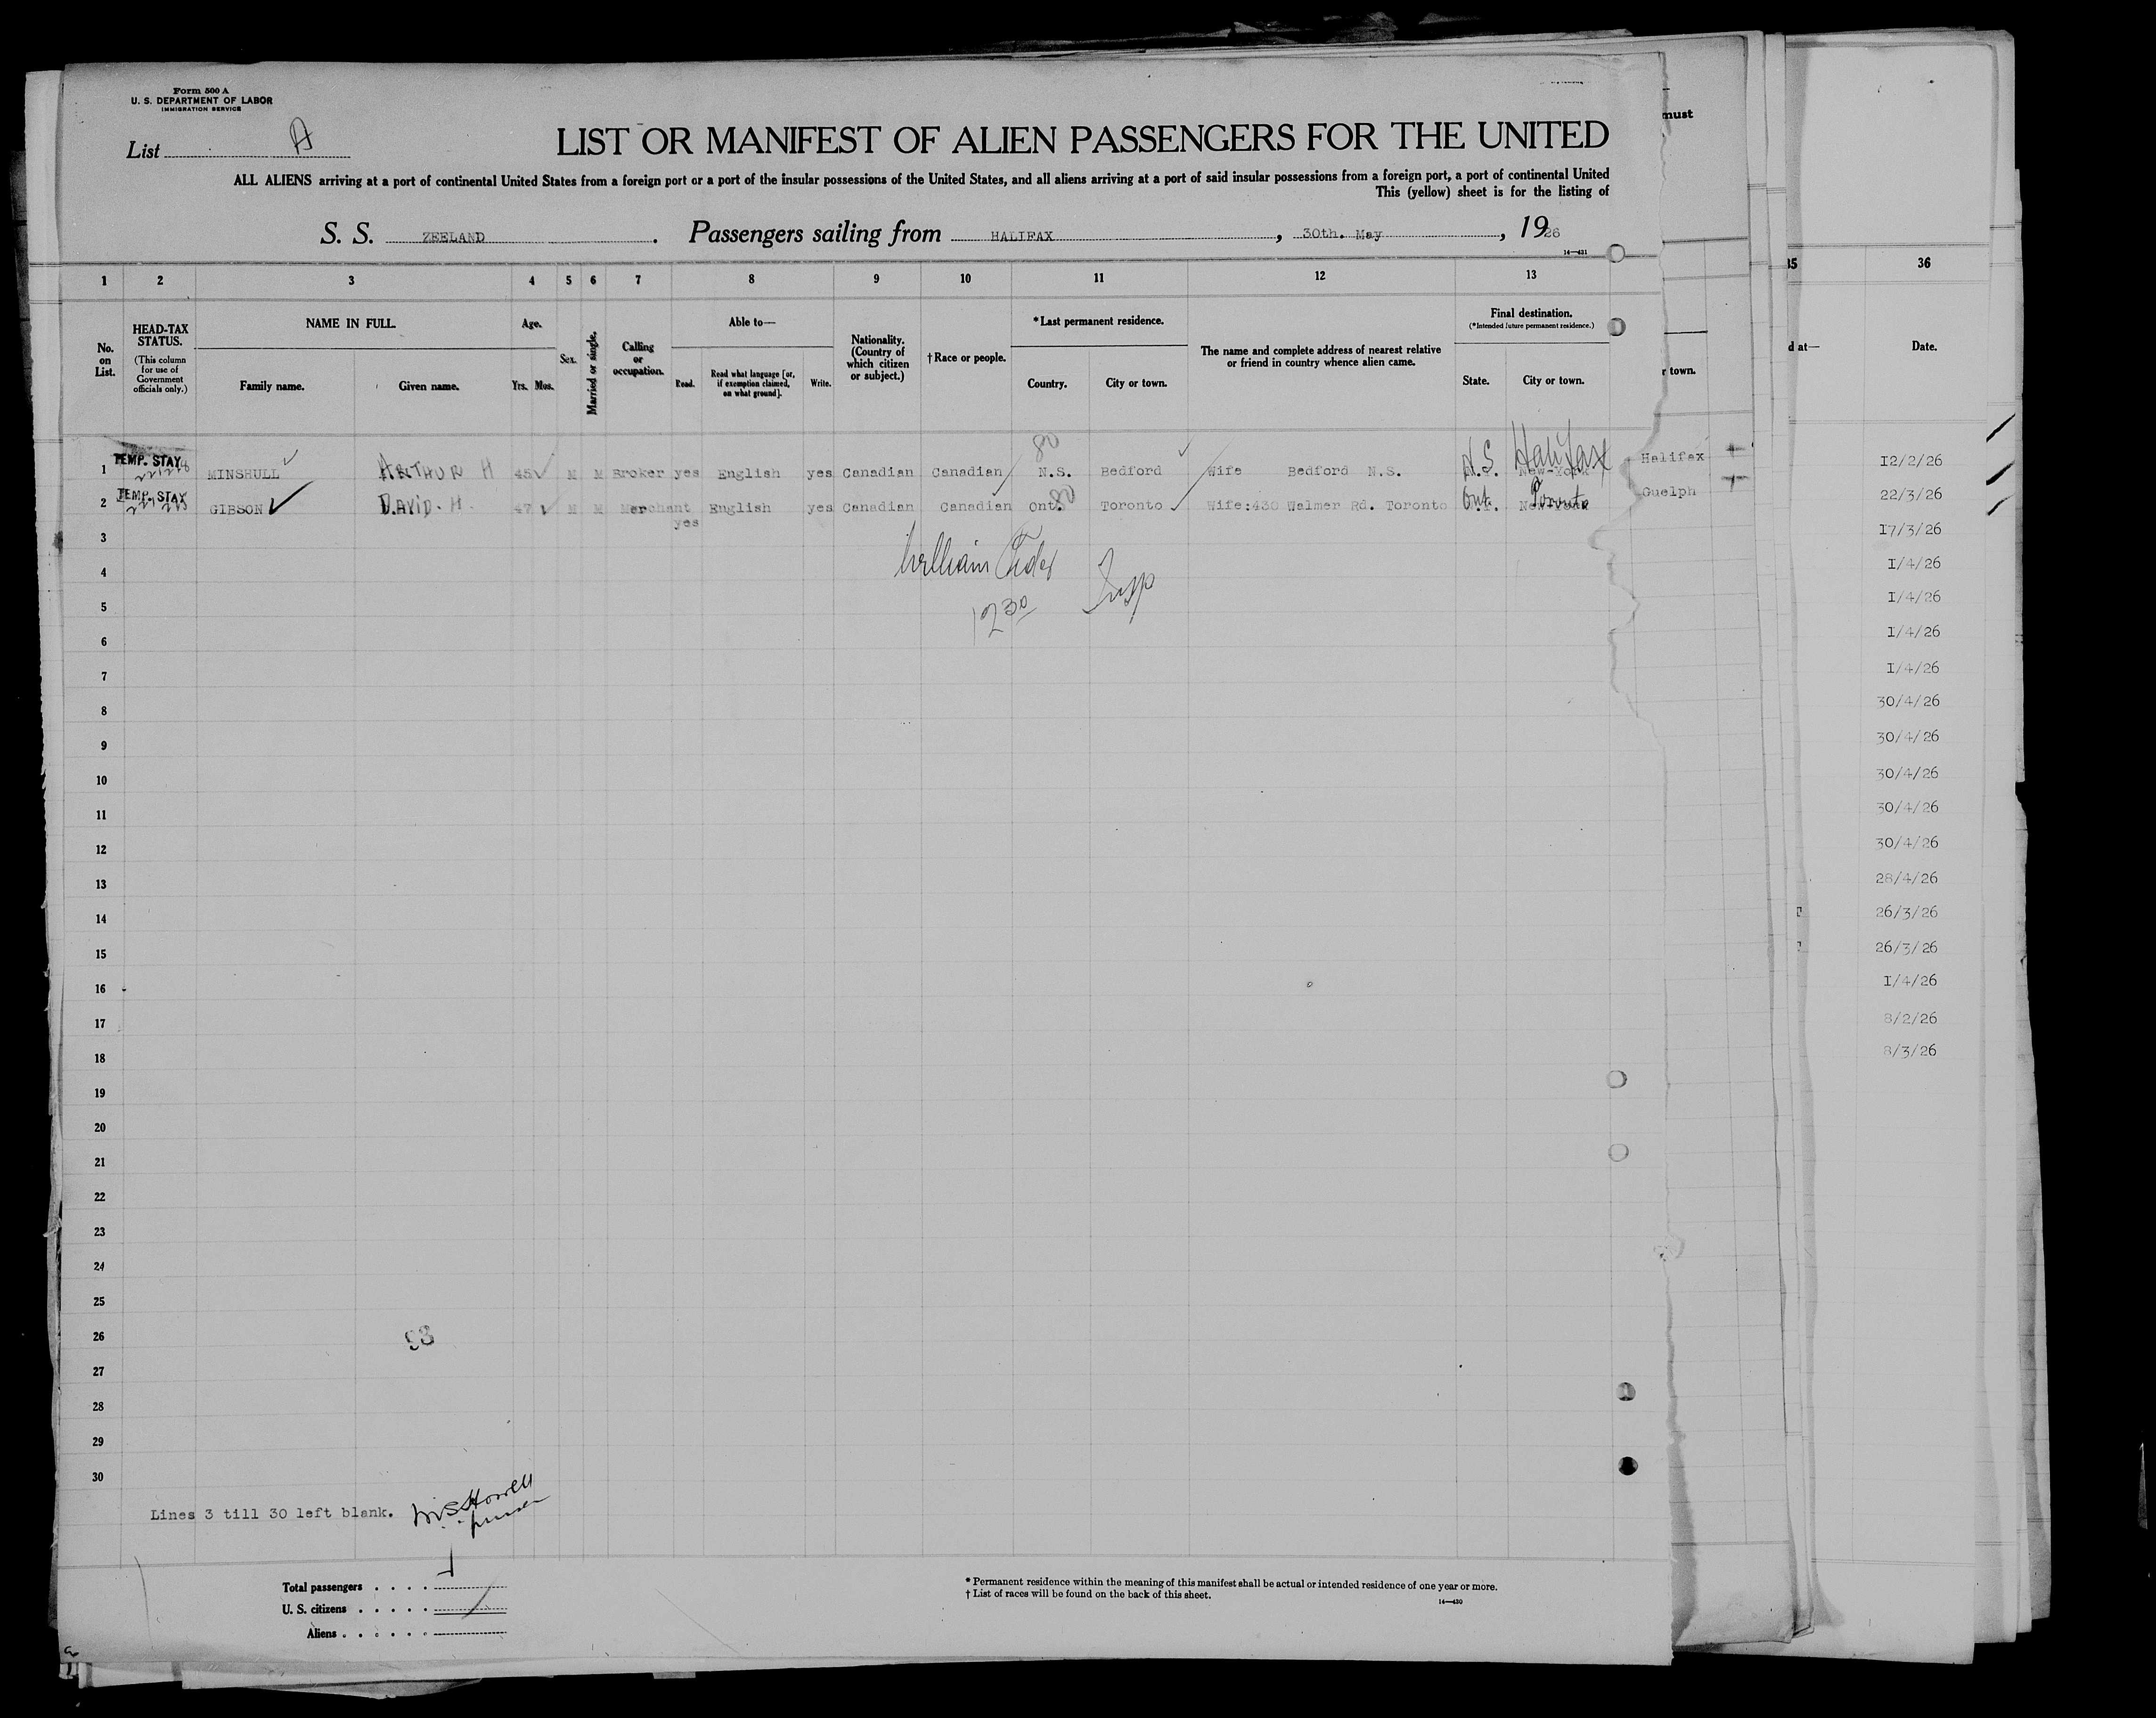 Form 500 A
U. S. DEPARTMENT OF LABOR
IMMIGRATION SERVICE
List A
LIST OR MANIFEST OF ALIEN PASSENGERS FOR THE UNITED
ALL ALIENS arriving at a port of continental United States from a foreign port or a port of the insular possessions of the United States, and all aliens arriving at a port of said insular possessions from a foreign port, a port of continental United
This (yellow) sheet is for the listing of
S. S. ZEELAND. Passengers sailing from HALIFAX, 30th. May, 1926
14—431
1 2 3 4 5 6 7 8 9 10 11 12 13
No. on List.
HEAD-TAX STATUS.
(This column for use of Government officials only.)
NAME IN FULL.
Family name. Given name.
Age.
Yrs. Mos.
Sex.
Married or single.
Calling or occupation.
Able to—
Read. Read what language [or, if exemption claimed, on what ground]. Write.
Nationality. (Country of which citizen or subject.)
†Race or people.
*Last permanent residence.
Country. City or town.
The name and complete address of nearest relative or friend in country whence alien came.
Final destination.
(*Intended future permanent residence.)
State. City or town.
80
1 TEMP. STAY MINSHULL ARTHUR H 45 M M Broker yes English yes Canadian Canadian N.S. Bedford Wife Bedford N.S. N.S. Halifax New-York
2 TEMP. STAY GIBSON DAVID. H. 47 M M Merchant yes English yes Canadian Canadian Ont. 80 Toronto Wife:430 Walmer Rd. Toronto Ont. Toronto
3
4
5
6
7
8
9
10
11
12
13
14
15
16
17
18
19
20
21
22
23
24
25
26
27
28
29
30
William
Insp
12 30
93
Lines 3 till 30 left blank.
Howell
purser
Total passengers
U. S. citizens
Aliens
* Permanent residence within the meaning of this manifest shall be actual or intended residence of one year or more.
† List of races will be found on the back of this sheet.
14—430
must
r town.
Halifax
Guelph
35 36
d at—
Date.
12/2/26
22/3/26
17/3/26
1/4/26
1/4/26
1/4/26
1/4/26
30/4/26
30/4/26
30/4/26
30/4/26
30/4/26
28/4/26
26/3/26
26/3/26
1/4/26
8/2/26
8/3/26